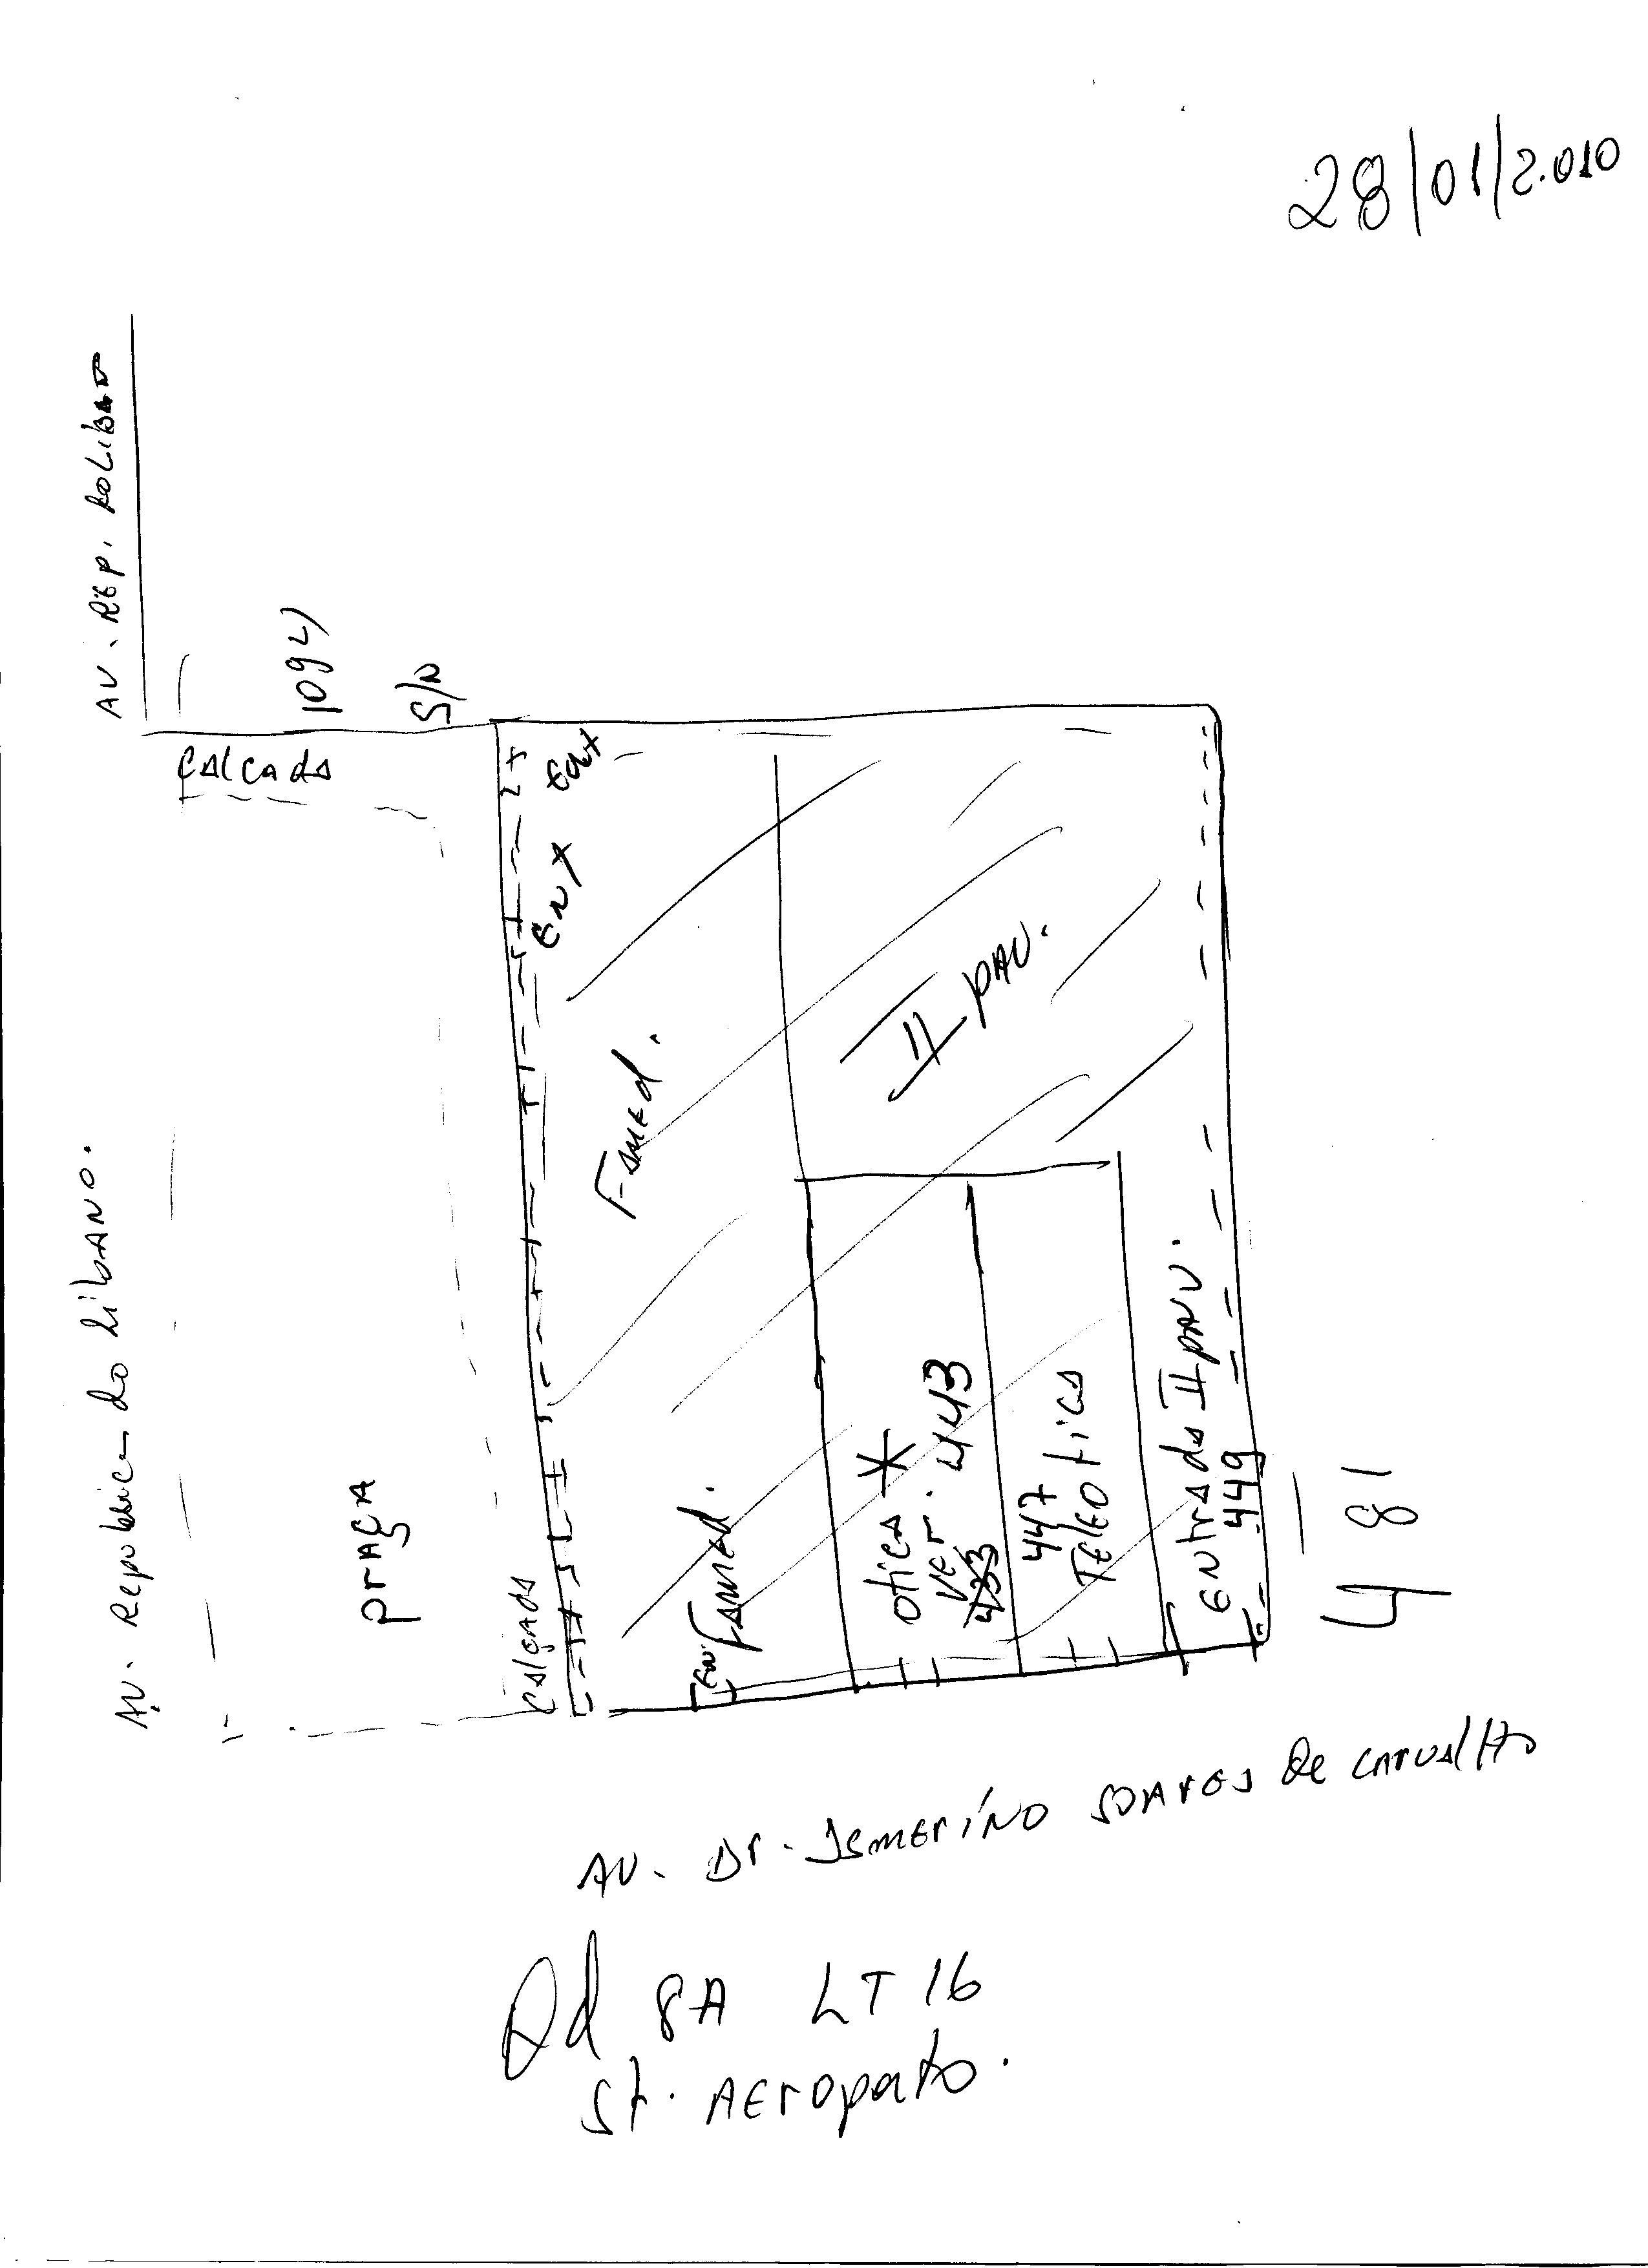 28/01/2.010
AV. REP. DO LIBANO
1092
S/N
Calcada
AV. Republica do LibANO.
PrAçA
Calçada
Ent
Ent
Famed.
II PAV.
Ent.
Famed.
Otica *
Ver. 443
433
447
TELEOtica
ENtrada II PAV.
449
481
AV. Dr. ISMERÍNO SOARES De CArvalHo
Qd 8A LT 16
St. AEroporto.